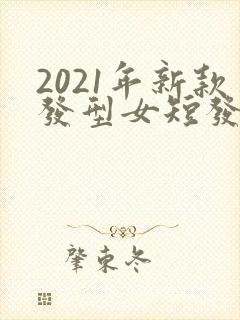 2021年新款
發型女短發
肇東冬